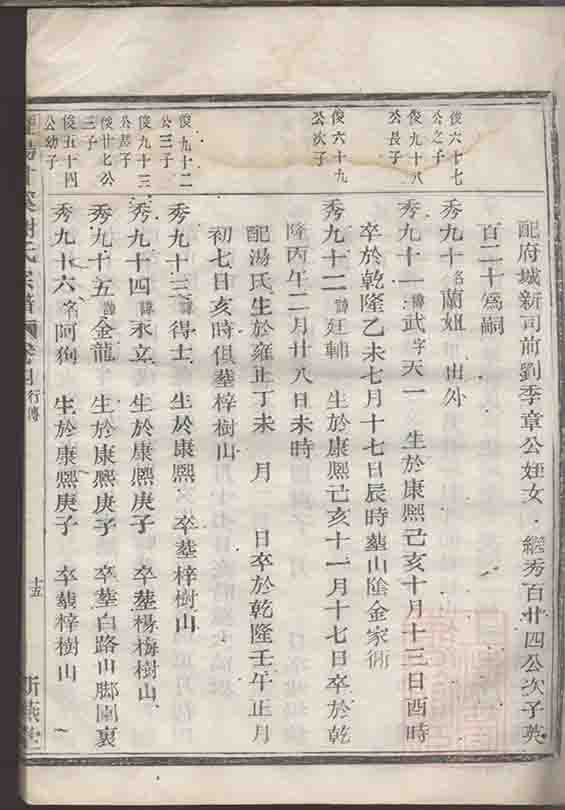 配府城新司前劉季章公姪女 繼秀百廿四公次子英
百二十爲嗣
俊六十七
公之子
秀九十名蘭姐 出外
俊九十八
公長子
秀九十一諱武字天一 生於康熙己亥十月十三日酉時
卒於乾隆乙未七月十七日辰時墓山陰金家衖
俊六十九
公次子
秀九十二諱廷輔 生於康熙己亥十一月十七日卒於乾
隆丙午二月廿八日未時
配湯氏生於雍正丁未 月 日卒於乾隆壬午正月
初七日亥時俱墓梓樹山
俊九十二
公三子
秀九十三諱得士 生於康熙 卒墓梓樹山
俊九十三
公幼子
秀九十四諱永立 生於康熙庚子 卒墓楊梅樹山
俊廿七公
三子
秀九十五諱金龍 生於康熙庚子 卒墓白路山腳園裏
俊五十四
公幼子
秀九十六名阿狗 生於康熙庚子 卒墓梓樹山
謝氏宗譜 行傳 十五